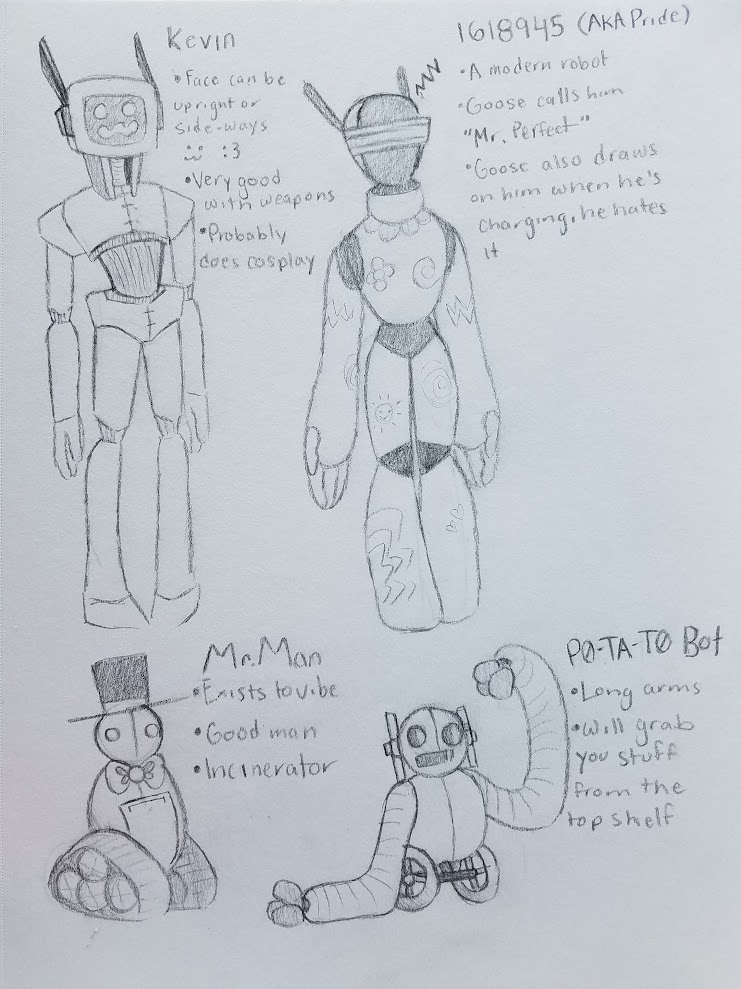 Kevin
• Face can be
upright or
side-ways
:3
• Very good
with weapons
• Probably
does cosplay
1618945 (AKA Pride)
• A modern robot
• Goose calls him
"Mr. Perfect"
• Goose also draws
on him when he's
charging, he hates
it
Mr. Man
• Exists to vibe
• Good man
• Incinerator
PØ-TA-TØ Bot
• Long arms
• Will grab
you stuff
from the
top shelf